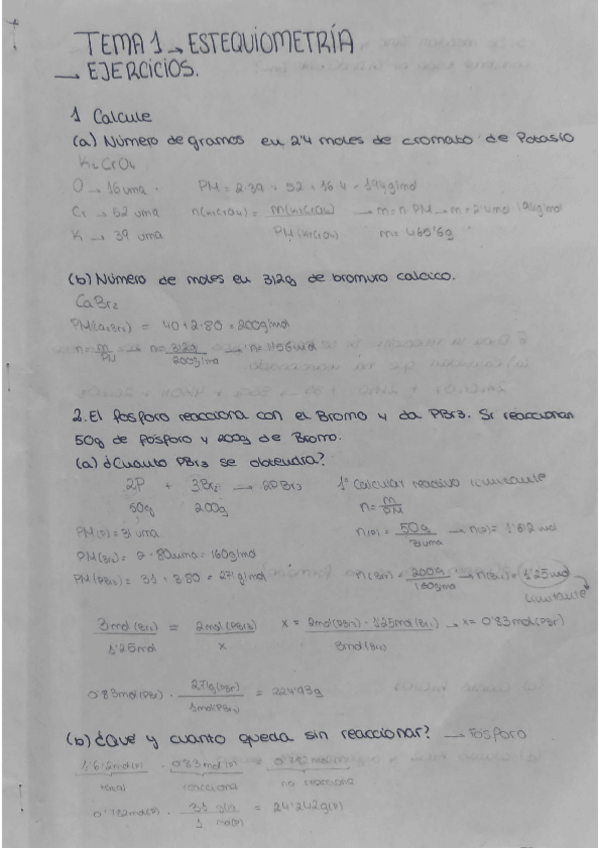 TEMA 1 → ESTEQUIOMETRÍA
→ EJERCICIOS.
1 Calcule
(a) Número de gramos en 2'4 moles de cromato de Potasio
K2CrO4
O → 16 uma · PM = 2·39 + 52 + 16·4 = 194g/mol
Cr → 52 uma n(K2CrO4) = m(K2CrO4) / PM(K2CrO4) → m = n·PM → m = 2'4mol·194g/mol
K → 39 uma m = 465'6g
(b) Número de moles en 312g de bromuro calcico.
CaBr2
PM(CaBr2) = 40 + 2·80 = 200g/mol
n = m/PM → n = 312g / 200g/mol → n = 1'56mol
2. El fosforo reacciona con el Bromo y da PBr3. Si reaccionan
50g de fósforo y 200g de Bromo.
(a) ¿Cuanto PBr3 se obtendra?
2P + 3Br2 → 2PBr3 1º Calcular reactivo limitante
50g 200g n = m/PM
PM(P) = 31 uma n(P) = 50g / 31uma → n(P) = 1'612 mol
PM(Br2) = 2·80uma = 160g/mol
PM(PBr3) = 31 + 3·80 = 271g/mol n(Br2) = 200g / 160g/mol → n(Br2) = 1'25mol
limitante
3mol(Br2) / 1'25mol = 2mol(PBr3) / x x = 2mol(PBr3) · 1'25mol(Br2) / 3mol(Br2) → x = 0'83mol(PBr)
0'83mol(PBr) · 271g(PBr) / 1mol(PBr3) = 224'93g
(b) ¿Qué y cuanto queda sin reaccionar? → Fósforo
0'83mol(P)
total reacciona no reacciona
0'782mol(P) · 31 / 1 mol(P) = 24'242g(P)